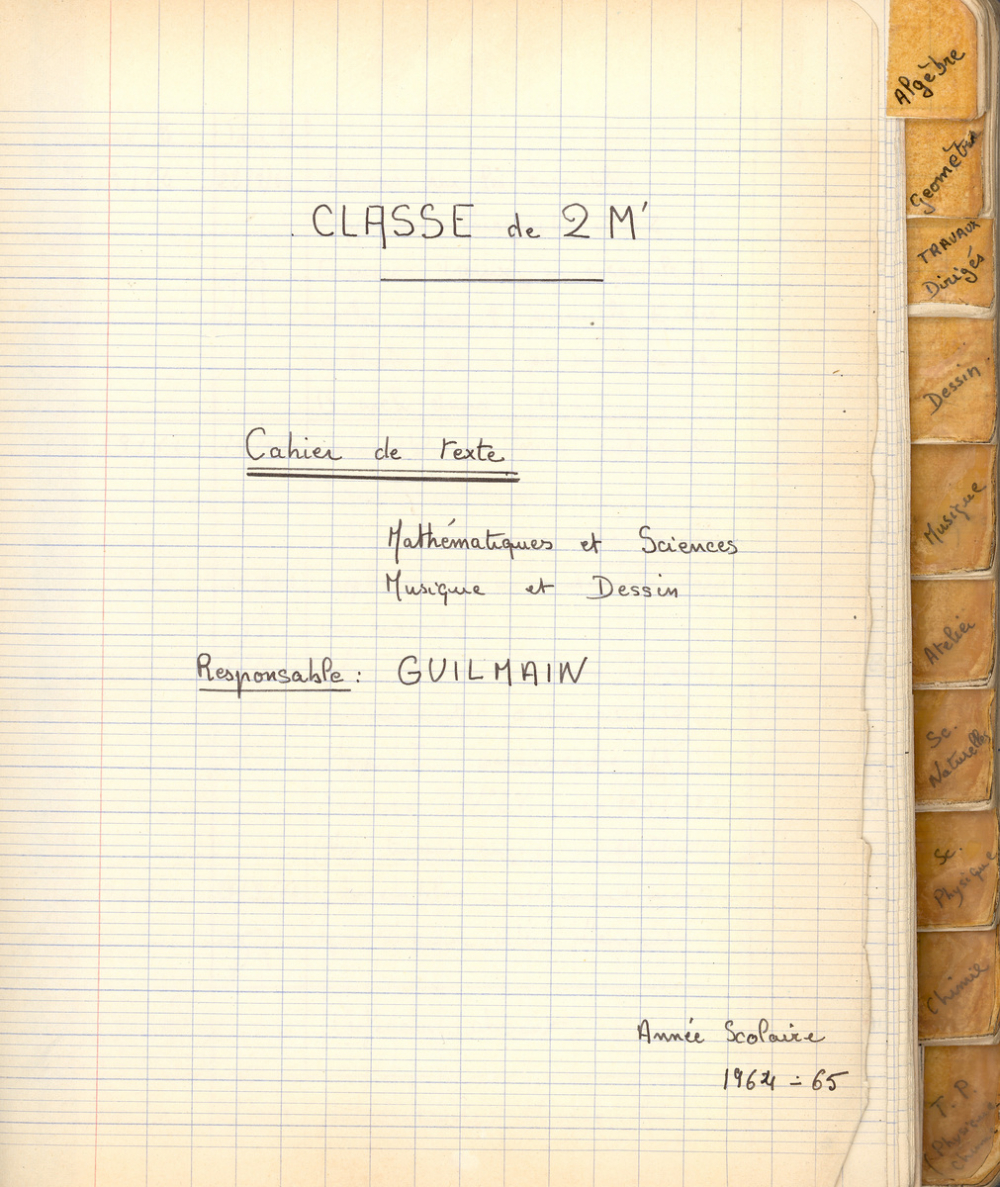 CLASSE de 2 M'
Cahier de texte
Mathématiques et Sciences
Musique et Dessin
Responsable : GUILMAIN
Année Scolaire
1964-65
Algèbre
Geométrie
TRAVAUX
Dirigés
Dessin
Musique
Atelier
Sc.
Naturelles
Sc.
Physique
Chimie
T. P.
Physique
Chimie